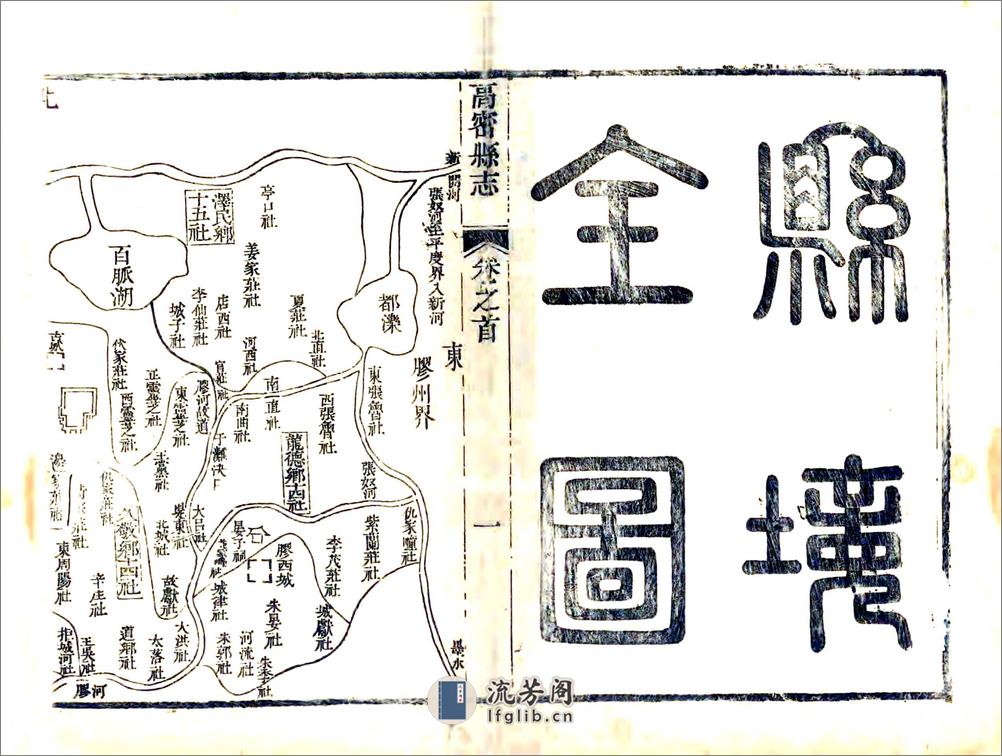 縣境
全圖
高密縣志
卷之首
一
新開河
張奴河至平度界入新河
東
膠州界
都濼
墨水
亭口社
澤民鄉
十五社
百脈湖
姜家莊社
店西社
李仙莊社
城子社
夏莊社
北直社
河西社
官莊社
南直社
南曲社
東張魯社
西張魯社
張奴河
龍德鄉十四社
膠河故道
正靈芝社
西靈芝社
東靈芝社
仇家疃社
紫蘭莊社
李茂莊社
城獻社
膠西城
晏子祠
朱晏社
城律社
河流社
朱郭社
朱季社
大呂社
堤東社
北城社
故獻社
大洪社
太落社
道鄉社
辛庄社
東周陽社
拒城河社
王吳社
膠河
流芳阁
lfglib.cn